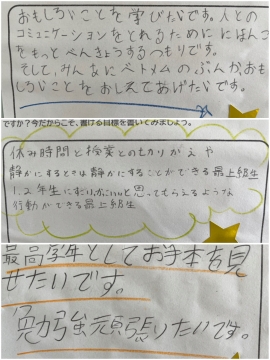 おもしろいことを学びたいです。人との
コミュニケーションをとれるためににほんご
をもっとべんきょうするつもりです。
そして、みんなにベトナムのぶんか、おも
しろいことをおしえてあげたいです。
ですか？今だからこそ、書ける目標を書いてみましょう。
休み時間と授業とのきりかえや
静かにするときは静かにすることができる最上級生
1、2年生にかっこいいと思ってもらえるような
行動ができる最上級生
最高学年としてお手本を見
せたいです。
勉強頑張りたいです。